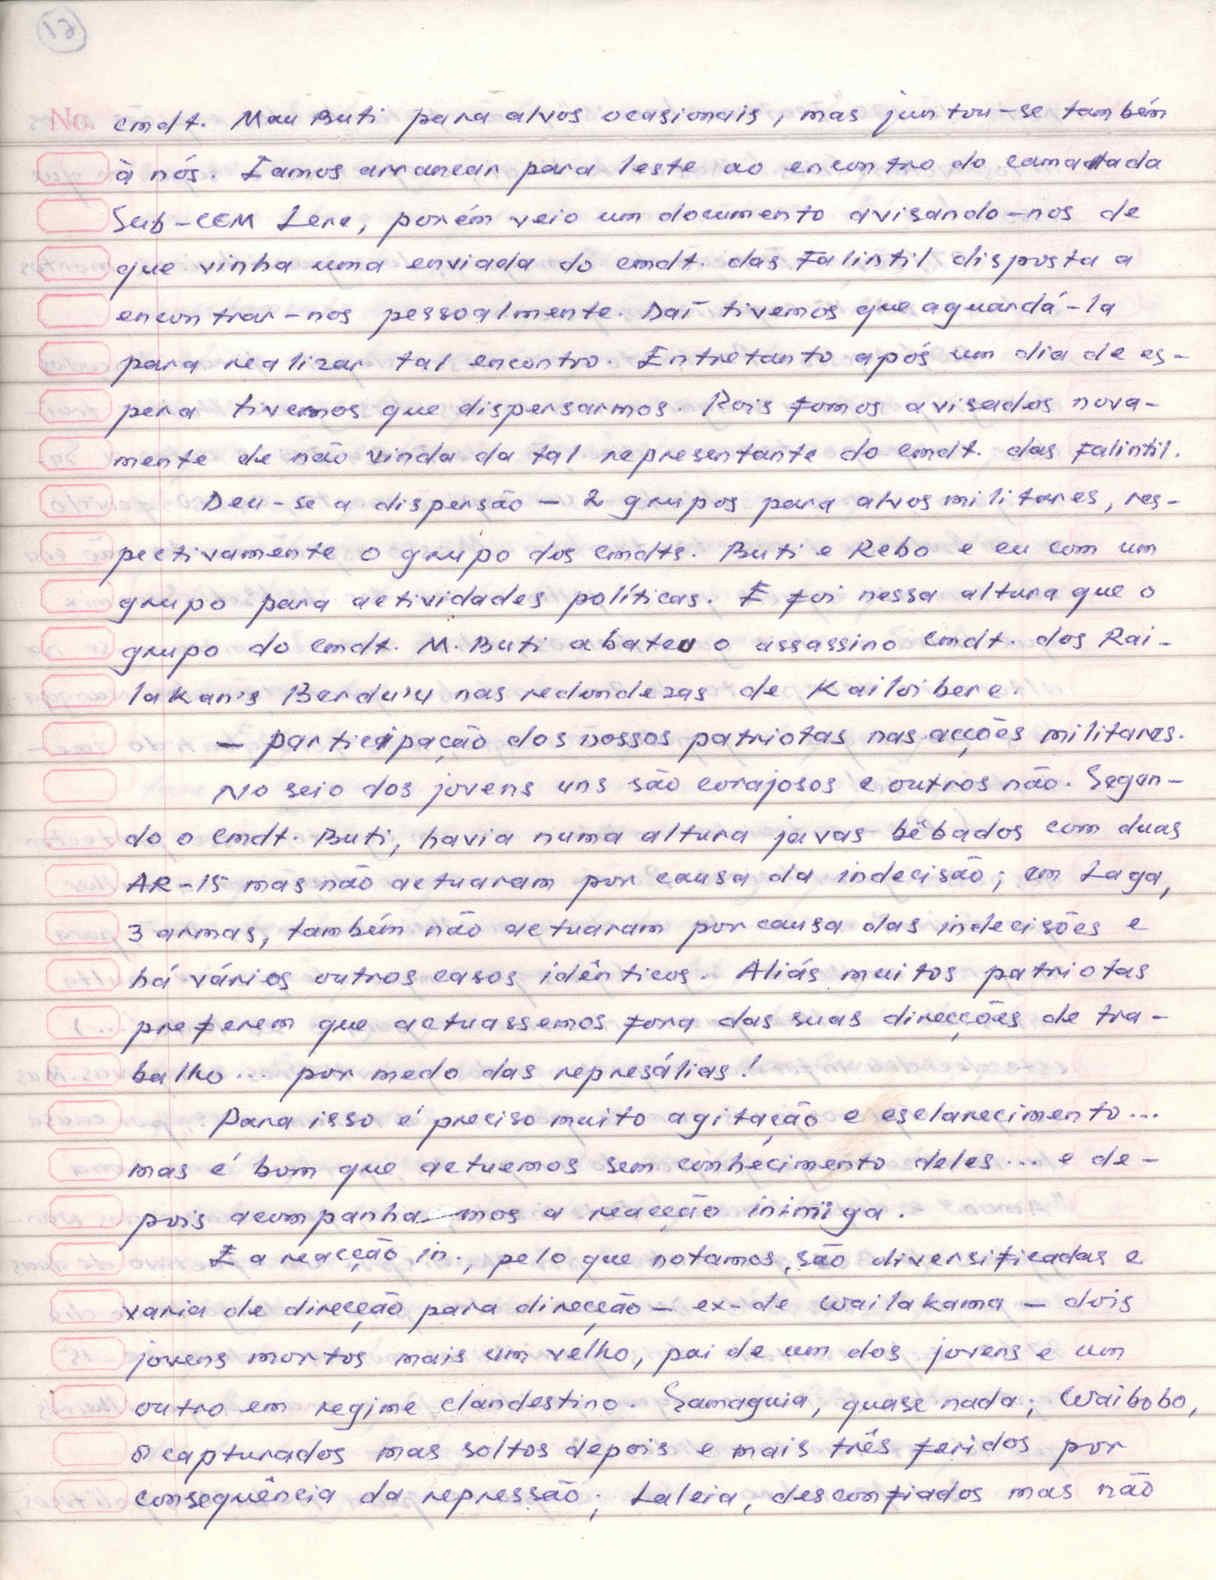 61
No.
cmdt. Mau Buti para alvos ocasionais, mas juntou-se também
à nós. Íamos arrancar para leste ao encontro do camarada
Sub-CEM Lere, porém veio um documento avisando-nos de
que vinha uma enviada do cmdt. das Falintil disposta a
encontrar-nos pessoalmente. Daí tivemos que aguardá-la
para realizar tal encontro. Entretanto após um dia de es-
pera tivemos que dispersarmos. Pois fomos avisados nova-
mente de não vinda da tal representante do cmdt. das Falintil.
Deu-se a dispersão - 2 grupos para alvos militares, res-
pectivamente o grupo dos cmdts. Buti e Rebo e eu com um
grupo para actividades políticas. E foi nessa altura que o
grupo do cmdt. M. Buti abateu o assassino cmdt. dos Rai-
lakan's Berdu'u nas redondezas de Kailoibere.
- participação dos nossos patriotas nas acções militares.
No seio dos jovens uns são corajosos e outros não. Segun-
do o cmdt. Buti, havia numa altura javas bêbados com duas
AR-15 mas não actuaram por causa da indecisão; em Laga,
3 armas, também não actuaram por causa das indecisões e
há vários outros casos idênticos. Aliás muitos patriotas
preferem que actuassemos fora das suas direcções de tra-
balho... por medo das represálias!
Para isso é preciso muito agitação e esclarecimento...
mas é bom que actuemos sem conhecimento deles... e de-
pois acompanha-mos a reacção inimiga.
E a reacção in., pelo que notamos, são diversificadas e
varia de direcção para direcção - ex- de Wailakama - dois
jovens mortos mais um velho, pai de um dos jovens e um
outro em regime clandestino. Samaguia, quase nada; Waibobo,
8 capturados mas soltos depois e mais três feridos por
consequência da repressão; Laleia, desconfiados mas não